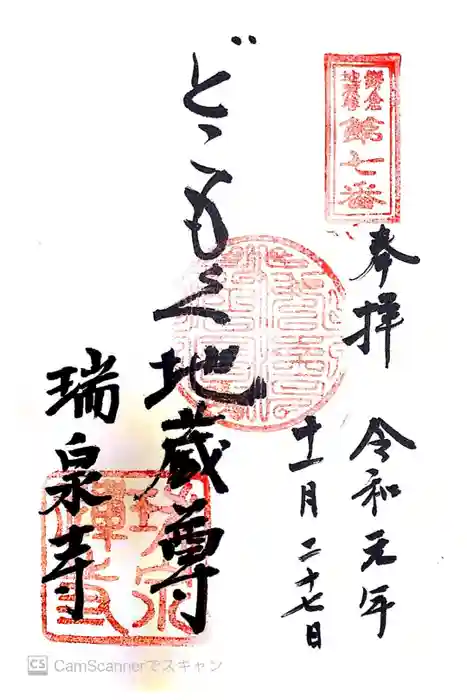 鎌倉
地蔵尊
第七番
奉拝
令和元年
十一月二十七日
どこもく地蔵尊
瑞泉寺
CS CamScannerでスキャン